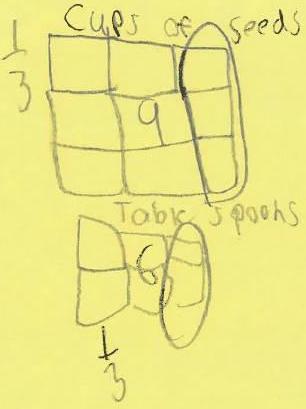 Cups of seeds
1/3
9
Table spoons
6
1/3